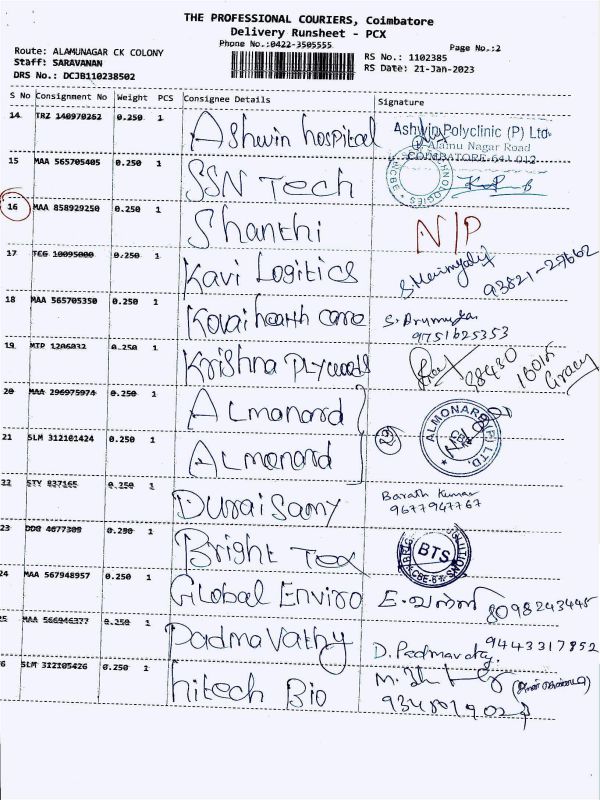 THE PROFESSIONAL COURIERS, Coimbatore
Delivery Runsheet - PCX
Phone No.:0422-3505555
Page No.:2
Route: ALAMUNAGAR CK COLONY
Staff: SARAVANAN
DRS No.: DCJB110238502
RS No.: 1102385
RS Date: 21-Jan-2023
S No Consignment No Weight PCS Consignee Details Signature
14 TRZ 140970262 0.250 1 Ashwin hospital Ashwin Polyclinic (P) Ltd
Alamu Nagar Road
COIMBATORE-641 012
15 MAA 565705405 0.250 1 SSN Tech
16 MAA 858929250 0.250 1 Shanthi N/P
17 TCG 10095000 0.250 1 Kavi Logitics 93821-29662
18 MAA 565705350 0.250 1 Kovai hearth care S. Arumugam
9751625353
19 MTP 1206032 0.250 1 Krishna Plywoods 98430 16015
Gracy
20 MAA 296975974 0.250 1 ALmonard ALMONARD (P) LTD.
21 SLM 312101424 0.250 1 ALmonard
22 STY 037165 0.250 1 Duraisamy Barath Kumar
9677947767
23 DDG 4677309 0.250 1 Bright Tex BTS
24 MAA 567948957 0.250 1 Global Enviro 8098243445
25 MAA 566946377 0.250 1 Padmavathy D. Padmavathy 9443317852
26 SLM 312105426 0.250 1 hitech Bio